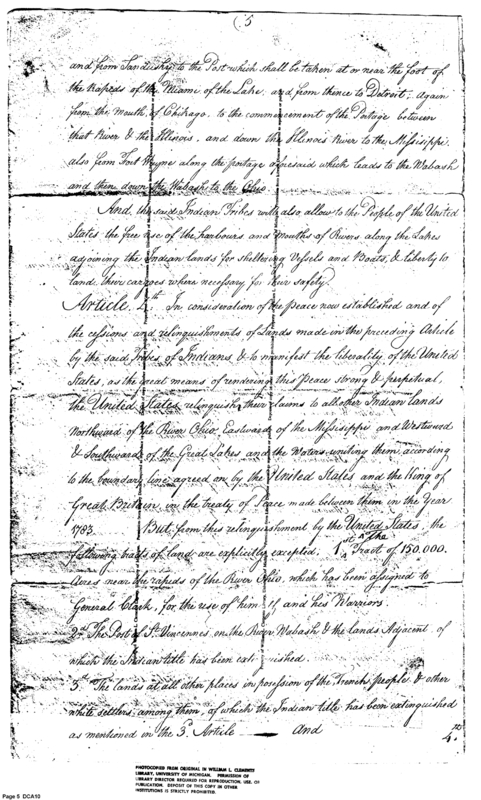 (5
and from Sandusky to the Post which shall be taken at or near the foot of
the Rapids of the Miami of the Lake, and from thence to Detroit, Again
from the Mouth of Chikago, to the commencement of the Portage between
that River & the Illinois, and down the Illinois River to the Missisippi,
also from Fort Wayne along the portage aforesaid which leads to the Wabash
and then down the Wabash to the Ohio.
And, the said Indian Tribes will also allow to the People of the United
States the free use of the harbours and mouths of Rivers along the Lakes
adjoining the Indian lands for sheltering Vessels and Boats, & liberty to
land their cargoes where necessary for their safety.
Article 4th In consideration of the Peace now established and of
the cessions and relinquishments of Lands made in the preceding Article
by the said Tribes of Indians, & to manifest the liberality of the United
States, as the great means of rendering this Peace strong & perpetual,
the United States relinquish their claims to all other Indian lands
Northward of the River Ohio, Eastward of the Missisippi and Westward
& Southward of the Great Lakes and the Waters uniting them, according
to the boundary line agreed on by the United States and the King of
Great Britain, in the treaty of Peace made between them in the Year
1783. But from this relinquishment by the United States, the
following tracts of land are explicitly excepted, 1st The Tract of 150,000.
Acres near the rapids of the River Ohio, which has been assigned to
General Clark, for the use of himself and his Warriors.
2nd The Post of St. Vincennes on the River Wabash & the lands Adjacent, of
which the Indian title has been extinguished
3d The lands at all other places in possession of the French people & other
white settlers among them, of which the Indian title has been extinguished
as mentioned in the 3d Article — And
4th
PHOTOCOPIED FROM ORIGINAL IN WILLIAM L. CLEMENTS
LIBRARY, UNIVERSITY OF MICHIGAN. PERMISSION OF
LIBRARY DIRECTOR REQUIRED FOR REPRODUCTION, USE, OR
PUBLICATION. DEPOSIT OF THIS COPY IN OTHER
INSTITUTIONS IS STRICTLY PROHIBITED.
Page 5 DCA10